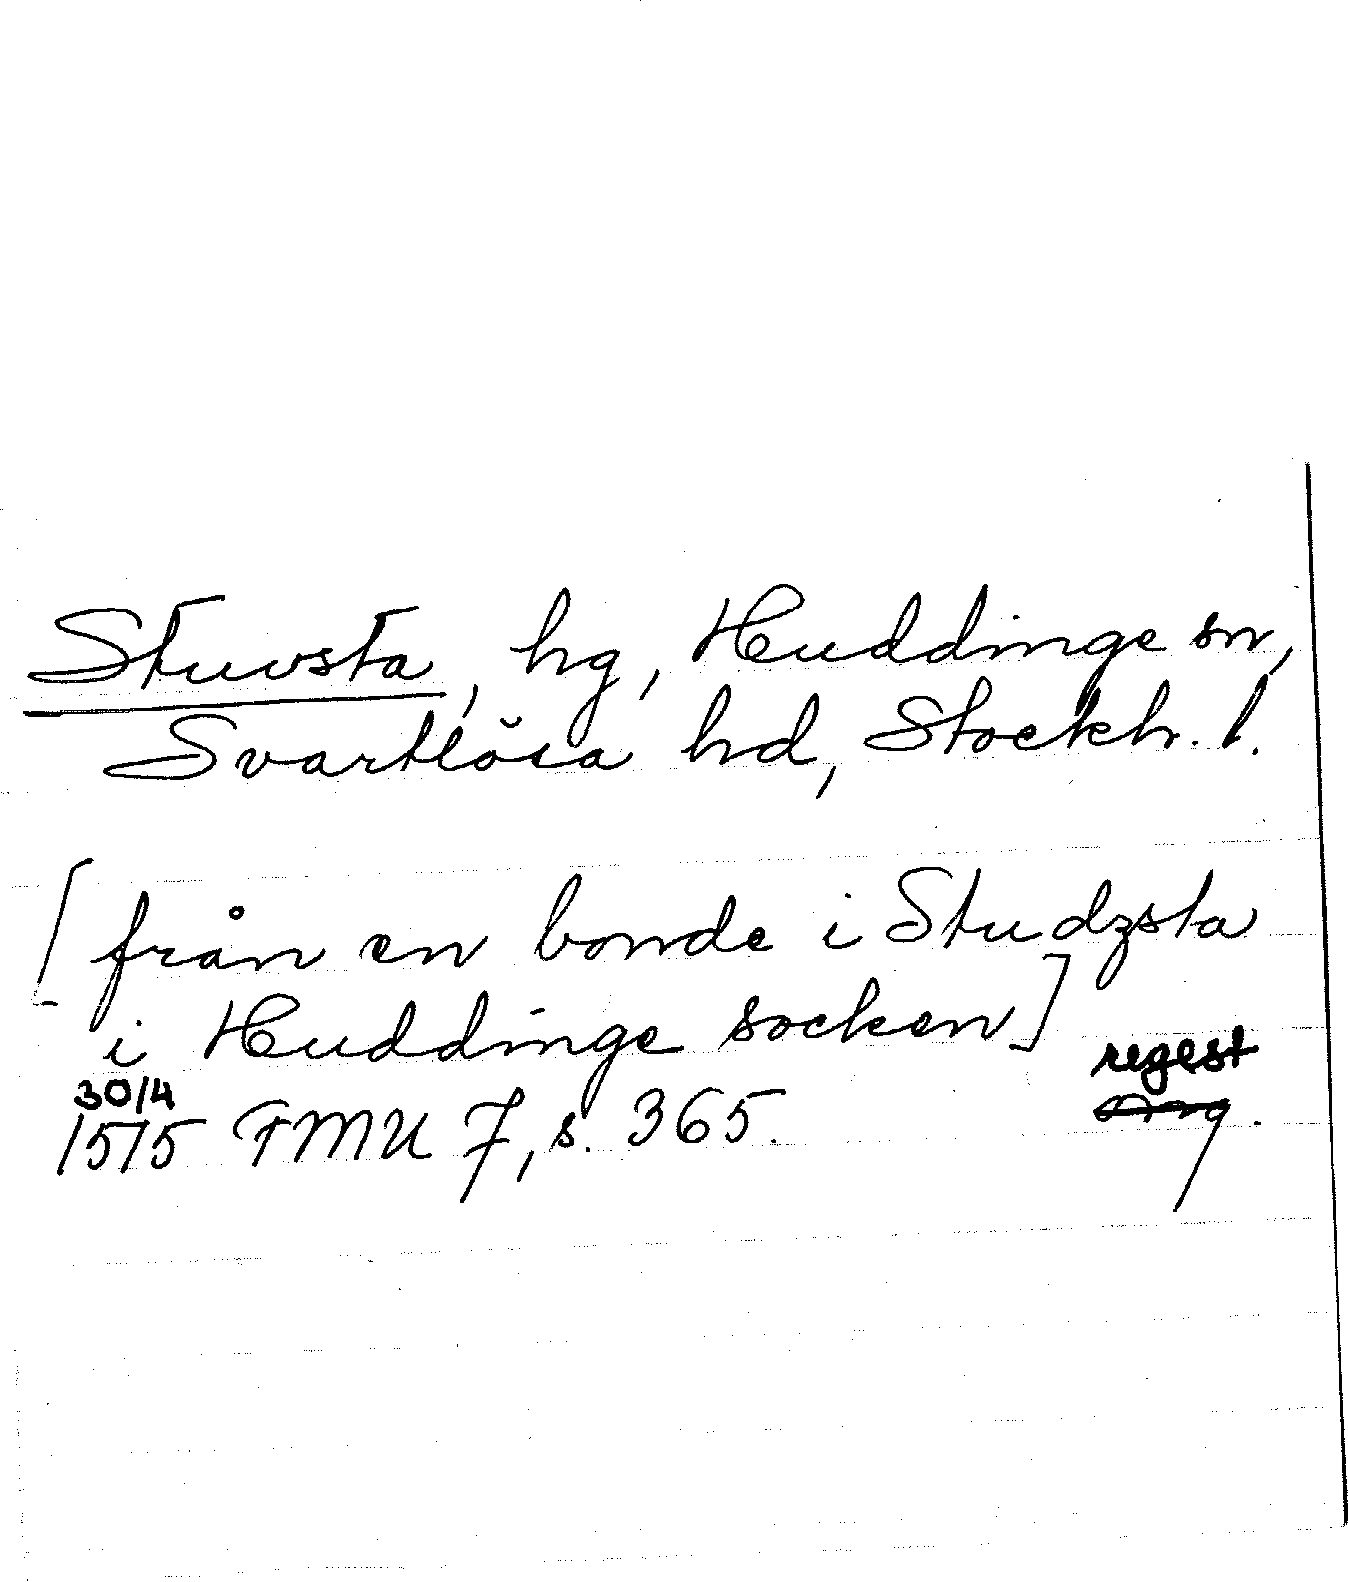 Stuvsta, hg, Huddinge sn,
Svartlösa hd, Stockh. l.
[från en bonde i Studzsta
i Huddinge socken]
regest
30/4
1515 FMU 7, s. 365.